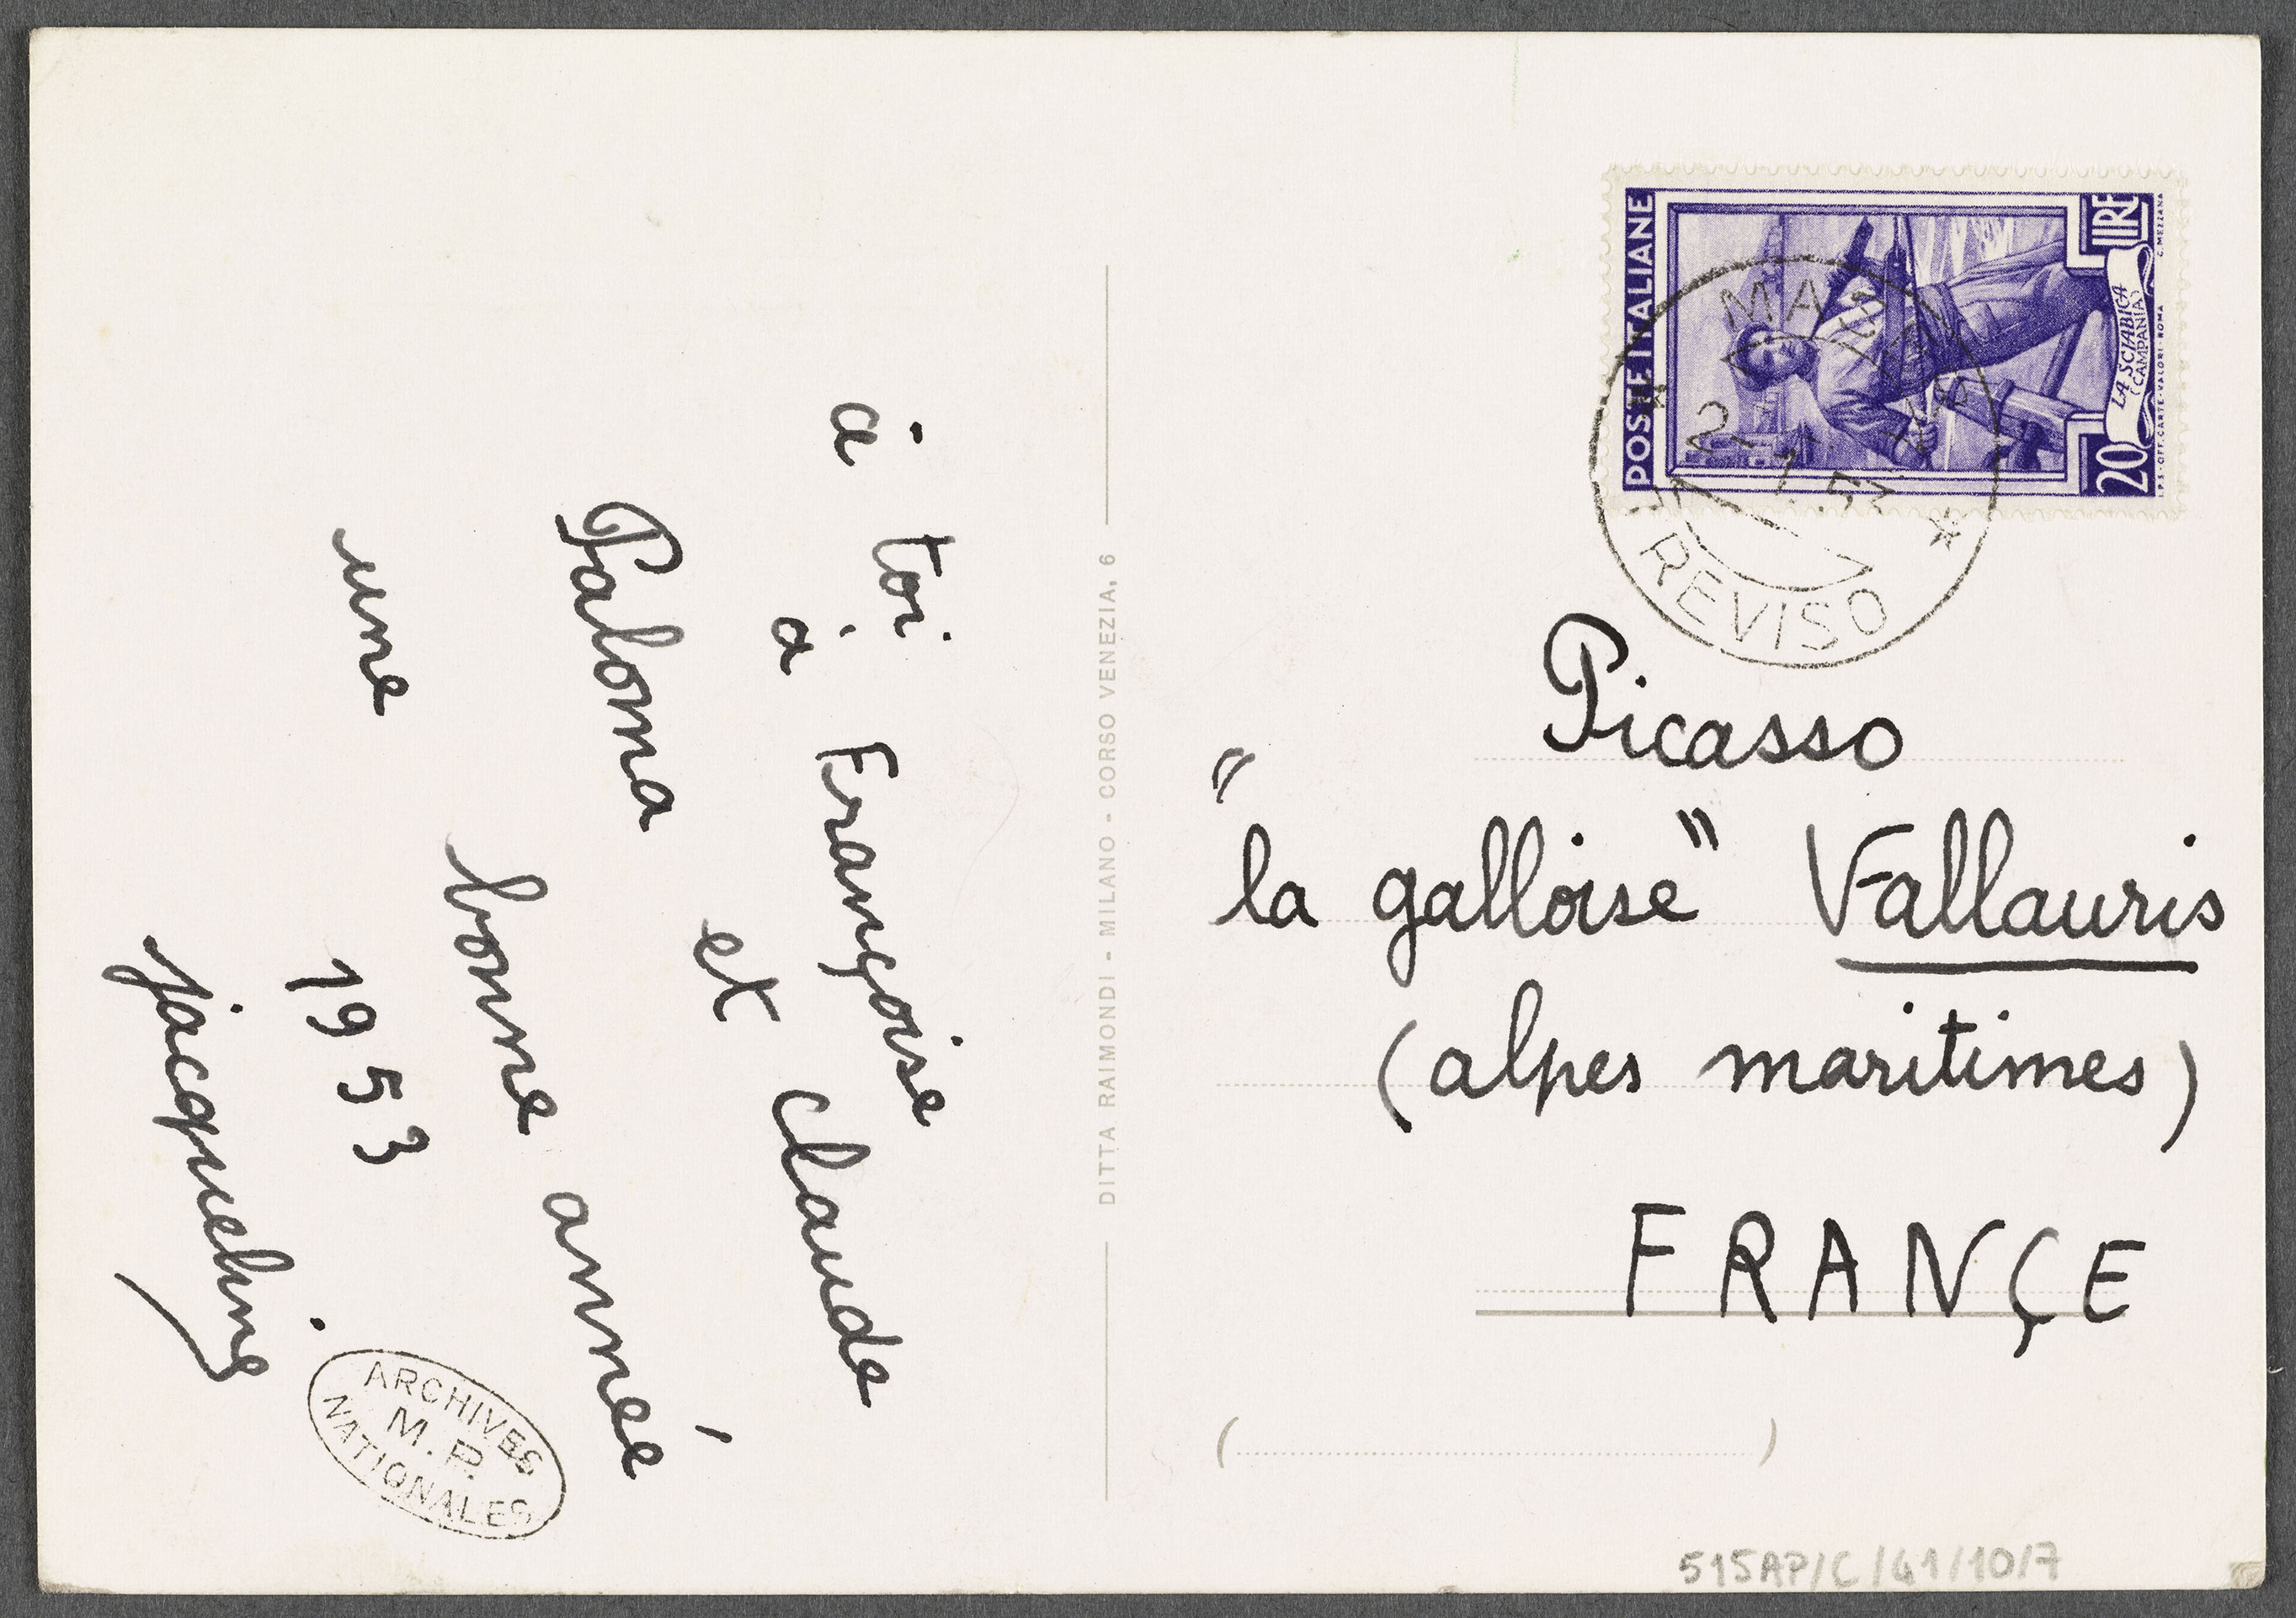 à toi
à Françoise
Paloma et Claude
une bonne année
1953
jacqueline
ARCHIVES
M. P.
NATIONALES
DITTA RAIMONDI - MILANO - CORSO VENEZIA, 6
POSTE ITALIANE
LIRE
20
LA SCIABICA
(CAMPANIA)
I.P.S. OFF. CARTE-VALORI-ROMA
C. MEZZANA
TREVISO
Picasso
"la galloise" Vallauris
(alpes maritimes)
FRANÇE
515AP/C/41/10/7